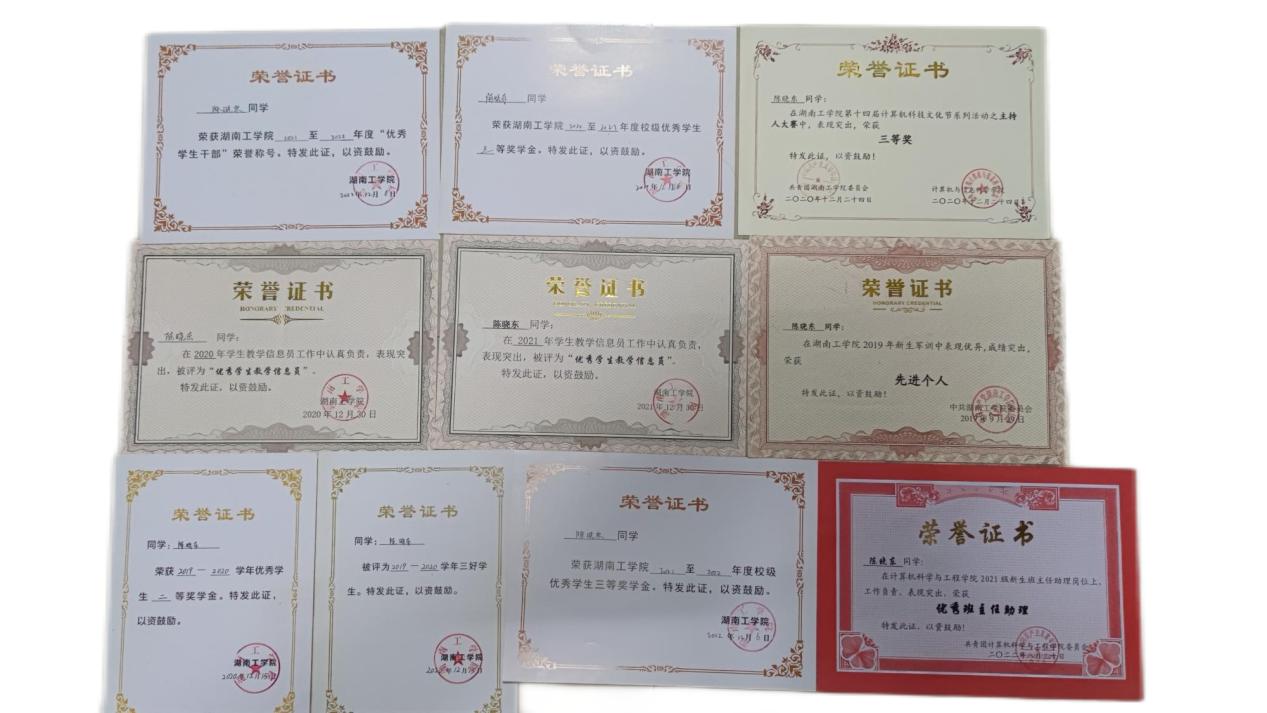 荣誉证书
同学
荣获湖南工学院 2021 至 2022 年度“优秀
学生干部”荣誉称号。特发此证，以资鼓励。
湖南工学院
荣誉证书
同学
荣获湖南工学院 至 年度校级优秀学生
等奖学金。特发此证，以资鼓励。
湖南工学院
荣誉证书
陈晓东 同学：
在湖南工学院第十四届计算机科技文化节系列活动之主持
人大赛中，表现突出，荣获
三等奖
特发此证，以资鼓励！
共青团湖南工学院委员会
二〇二〇年十二月二十四日
计算机与信息科学学院
二〇二〇年十二月二十四日
荣誉证书
HONORARY CREDENTIAL
陈晓东 同学：
在 2020 年学生教学信息员工作中认真负责，表现突
出，被评为“优秀学生教学信息员”。
特发此证，以资鼓励。
湖南工学院
2020 年 12 月 30 日
荣誉证书
HONORARY CREDENTIAL
陈晓东 同学：
在 2021 年学生教学信息员工作中认真负责，
表现突出，被评为“优秀学生教学信息员”。
特发此证，以资鼓励。
湖南工学院
2021 年 12 月 30 日
荣誉证书
HONORARY CREDENTIAL
陈晓东 同学：
在湖南工学院 2019 年新生军训中表现优异,成绩突出，
荣获
先进个人
特发此证，以资鼓励！
中共湖南工学院委员会
2019 年 9 月 29 日
荣誉证书
同学：陈晓东
荣获 2019 — 2020 学年优秀学
生 二 等奖学金。特发此证，
以资鼓励。
湖南工学院
2020年12月15日
荣誉证书
同学：陈晓东
被评为 2019 — 2020 学年三好学
生。特发此证，以资鼓励。
湖南工学院
2020年12月15日
荣誉证书
陈晓东 同学
荣获湖南工学院 2021 至 2022 年度校级
优秀学生三等奖学金。特发此证，以资鼓励。
湖南工学院
2022 年 12月 6 日
荣誉证书
陈晓东 同学：
在计算机科学与工程学院 2021 级新生班主任助理岗位上，
工作负责、表现突出，荣获
优秀班主任助理
特发此证，以资鼓励！
共青团计算机科学与工程学院委员会